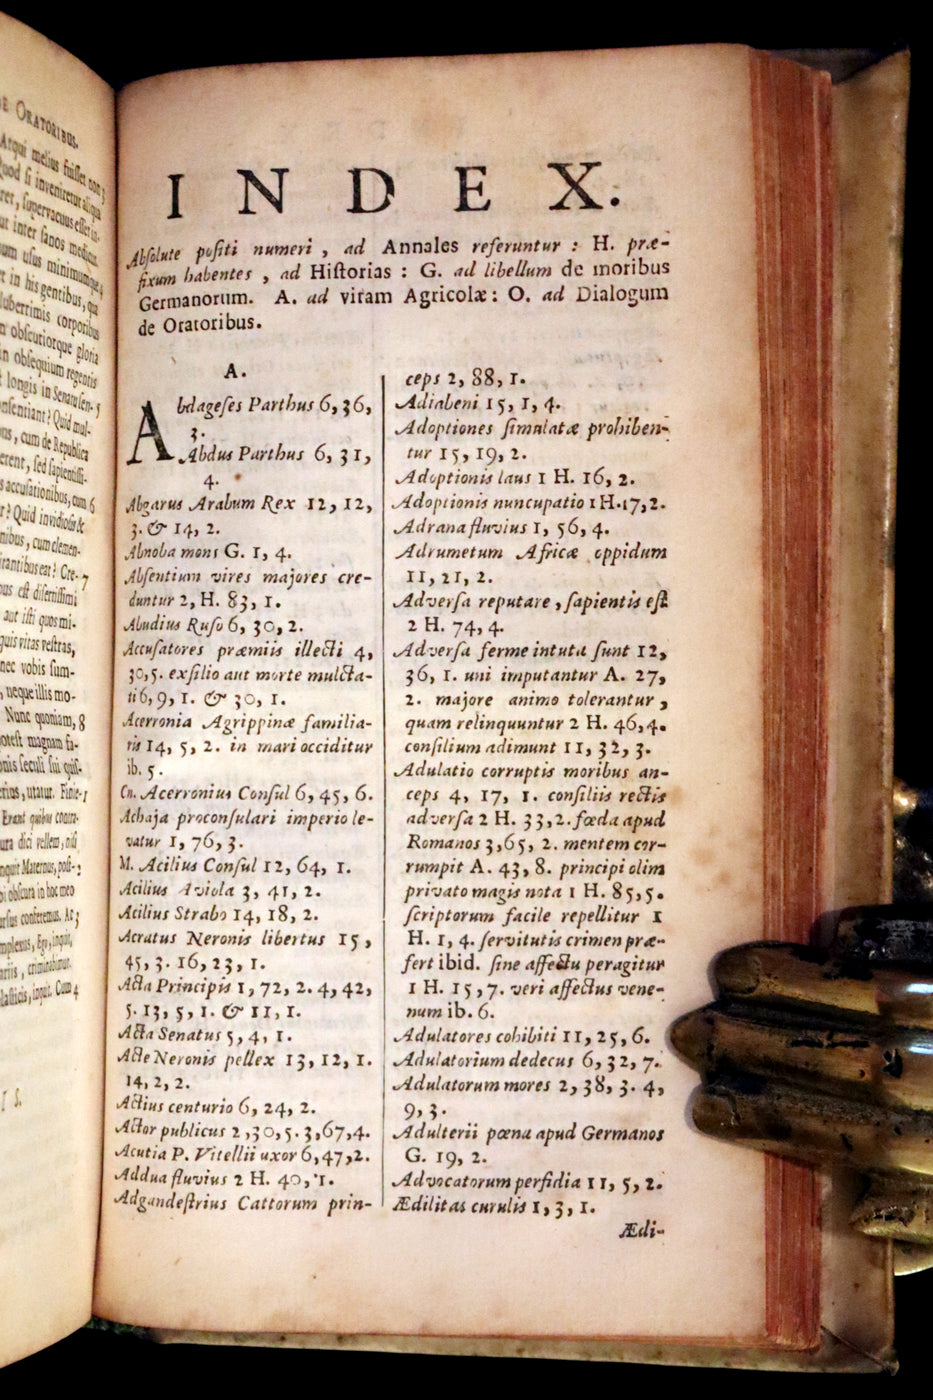 DE ORATORIBUS.
Atqui melius fuisset non 3
Quod si inveniretur aliqua
supervacuus esset in-
ut inter sanos medicus.
usus minimumque 4
in his gentibus, qua
saluberrimis corporibus
obscuriorque gloria
in obsequium regentis
longis in Senatu sen- 5
consentiant? Quid mul-
cum de Republica
sed sapientissi-
accusationibus, cum 6
Quid invidiosis &
cum clemen-
eat? Cre- 7
est disertissimi
aut isti quos mi-
vitas vestras,
nec vobis sum-
neque illis mo-
Nunc quoniam, 8
potest magnam fa-
seculi sui quis-
utatur. Finie- 1
Erant quibus contra-
dici vellem, nisi
inquit Maternus, post- 2
obscura in hoc meo
conferemus. Ac 3
Ego, inquit,
criminabimur.
inquit. Cum 4
I S.
INDEX.
Absolute positi numeri, ad Annales referuntur: H. præ-
fixum habentes, ad Historias: G. ad libellum de moribus
Germanorum. A. ad vitam Agricolæ: O. ad Dialogum
de Oratoribus.
A.
Abdageses Parthus 6, 36,
3.
Abdus Parthus 6, 31,
4.
Abgarus Arabum Rex 12, 12,
3. & 14, 2.
Abnoba mons G. 1, 4.
Absentium vires majores cre-
duntur 2, H. 83, 1.
Abudius Ruso 6, 30, 2.
Accusatores præmiis illecti 4,
30, 5. exsilio aut morte mulcta-
ti 6, 9, 1. & 30, 1.
Acerronia Agrippinæ familia-
ris 14, 5, 2. in mari occiditur
ib. 5.
Cn. Acerronius Consul 6, 45, 6.
Achaja proconsulari imperio le-
vatur 1, 76, 3.
M. Acilius Consul 12, 64, 1.
Acilius Aviola 3, 41, 2.
Acilius Strabo 14, 18, 2.
Acratus Neronis libertus 15,
45, 3. 16, 23, 1.
Acta Principis 1, 72, 2. 4, 42,
5. 13, 5, 1. & 11, 1.
Acta Senatus 5, 4, 1.
Acte Neronis pellex 13, 12, 1.
14, 2, 2.
Actius centurio 6, 24, 2.
Actor publicus 2, 30, 5. 3, 67, 4.
Acutia P. Vitellii uxor 6, 47, 2.
Addua fluvius 2 H. 40, 1.
Adgandestrius Cattorum prin-
ceps 2, 88, 1.
Adiabeni 15, 1, 4.
Adoptiones simulatæ prohiben-
tur 15, 19, 2.
Adoptionis laus 1 H. 16, 2.
Adoptionis nuncupatio 1 H. 17, 2.
Adrana fluvius 1, 56, 4.
Adrumetum Africæ oppidum
11, 21, 2.
Adversa reputare, sapientis est
2 H. 74, 4.
Adversa ferme intuta sunt 12,
36, 1. uni imputantur A. 27,
2. majore animo tolerantur,
quam relinquuntur 2 H. 46, 4.
consilium adimunt 11, 32, 3.
Adulatio corruptis moribus an-
ceps 4, 17, 1. consiliis rectis
adversa 2 H. 33, 2. fœda apud
Romanos 3, 65, 2. mentem cor-
rumpit A. 43, 8. principi olim
privato magis nota 1 H. 85, 5.
scriptorum facile repellitur 1
H. 1, 4. servitutis crimen præ-
fert ibid. sine affectu peragitur
1 H. 15, 7. veri affectus vene-
num ib. 6.
Adulatores cohibiti 11, 25, 6.
Adulatorium dedecus 6, 32, 7.
Adulatorum mores 2, 38, 3. 4,
9, 3.
Adulterii pœna apud Germanos
G. 19, 2.
Advocatorum perfidia 11, 5, 2.
Ædilitas curulis 1, 3, 1.
Ædi-